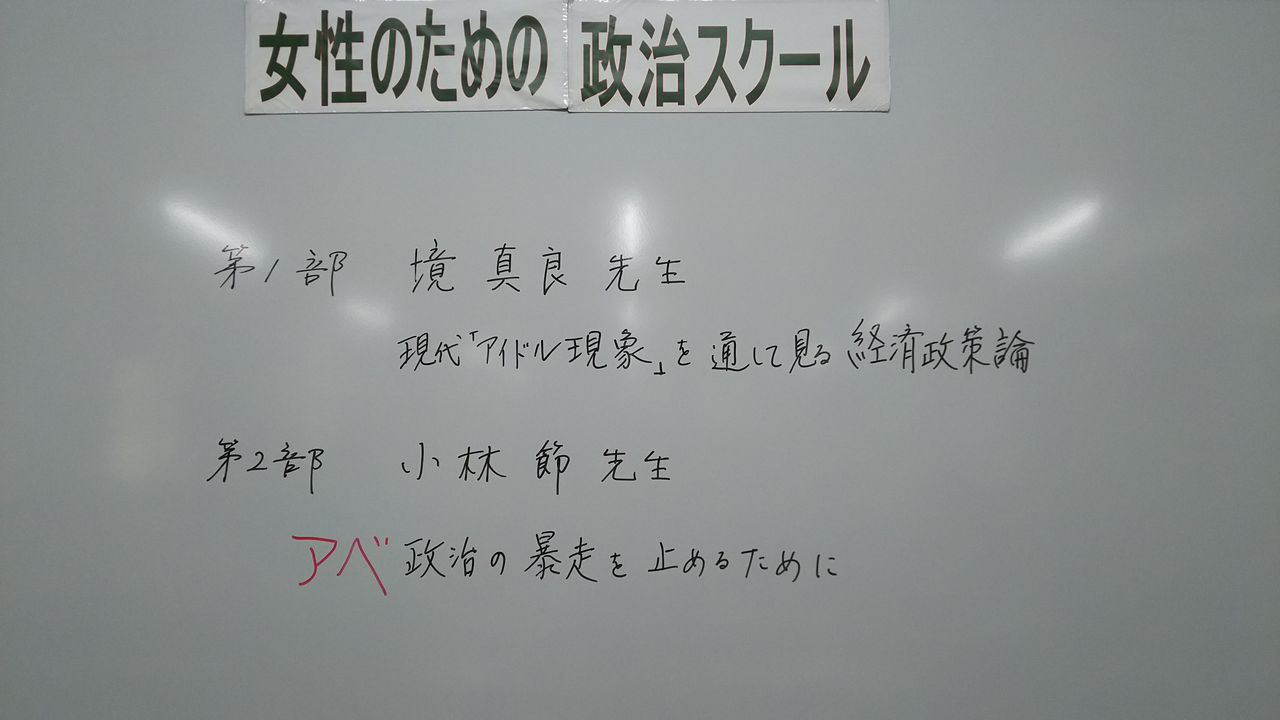 女性のための 政治スクール
第1部 境 真良 先生
現代「アイドル現象」を通して見る経済政策論
第2部 小林 節 先生
アベ政治の暴走を止めるために